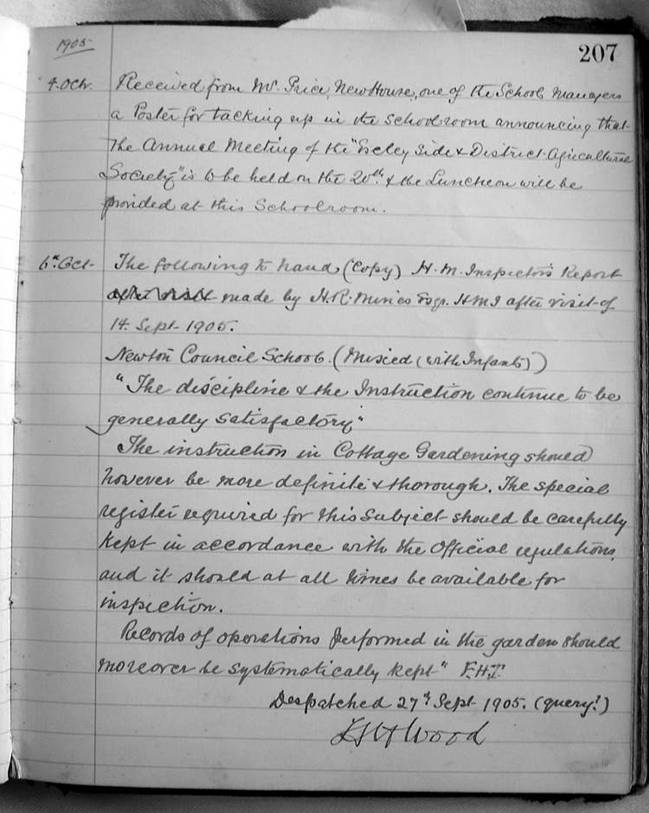 1905
207
4. Oct. Received from Mr. Price, New House, one of the School Managers
a Poster for tacking up in the schoolroom announcing that
the Annual Meeting of the "Escley Side & District Agricultural
Society" is to be held on the 20th. & the Luncheon will be
provided at this Schoolroom.
6th. Oct. The following to hand (Copy) H.M. Inspector's Report
after visit made by H.R. Esqr. H.M.I after visit of
14. Sept 1905.
Newton Council School. (Mixed (with Infants))
"The discipline & the Instruction continue to be
generally satisfactory"
The instruction in Cottage Gardening should
however be more definite & thorough. The special
register required for this Subject should be carefully
kept in accordance with the Official regulations,
and it should at all times be available for
inspection.
Records of operations performed in the garden should
moreover be systematically kept" F.H.T.
Despatched 27th Sept 1905. (query?)
Wood